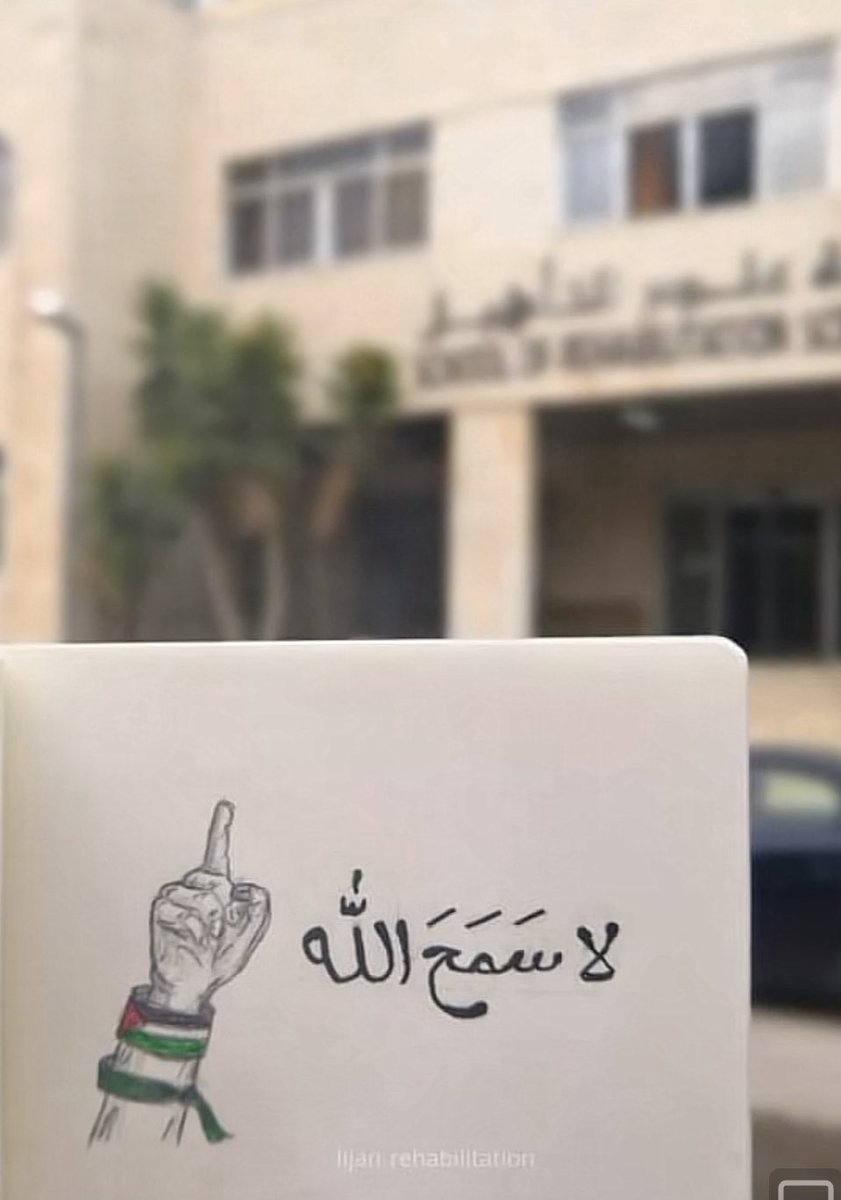 علوم التأهيل
SCHOOL OF REHABILITATION
لا سَمَحَ اللّٰه
lijan rehabilitation